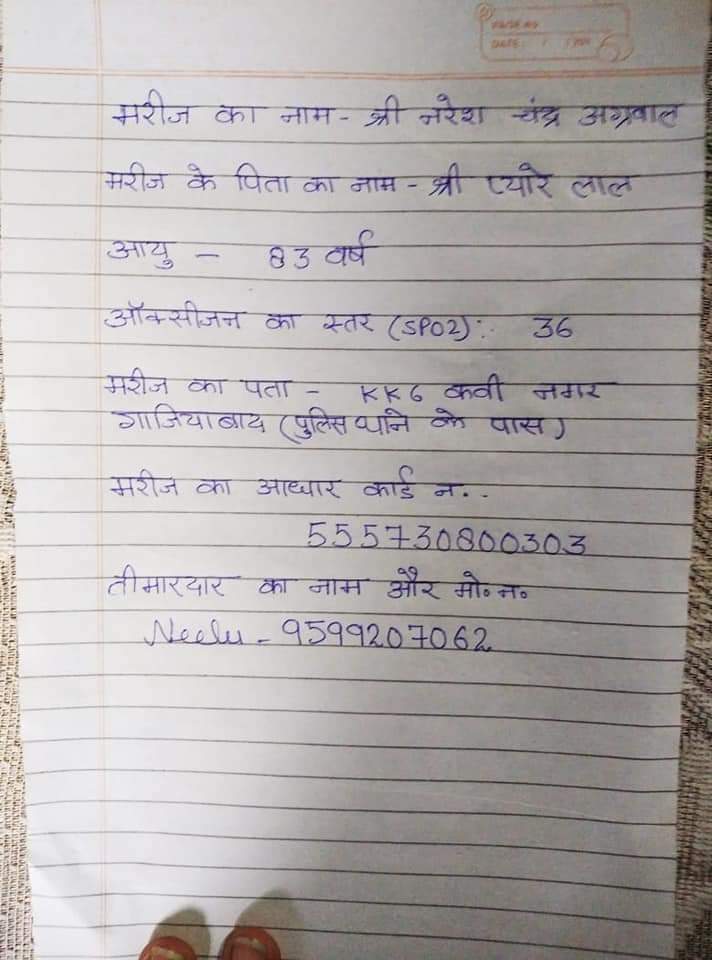 PAGE NO
DATE: / /
मरीज का नाम - श्री नरेश चंद्र अग्रवाल
मरीज के पिता का नाम - श्री प्यारे लाल
आयु - 83 वर्ष
ऑक्सीजन का स्तर (SPO2):. 36
मरीज का पता - KK6 कवी नगर
गाजियाबाद (पुलिस थाने के पास)
मरीज का आधार कार्ड न..
555730800303
तीमारदार का नाम और मो.न.
Neelu - 9599207062